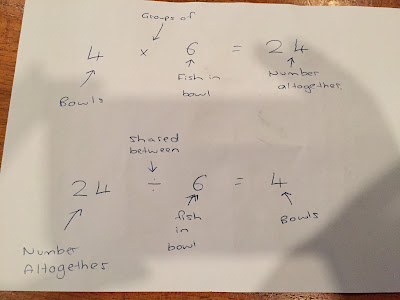 Groups of
4 x 6 = 24
Bowls
Fish in
bowl
Number
altogether
shared
between
24 ÷ 6 = 4
Number
Altogether
fish
in
bowl
Bowls